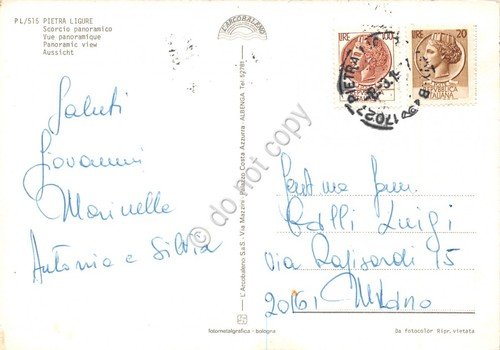 PL/515 PIETRA LIGURE
Scorcio panoramico
Vue panoramique
Panoramic view
Aussicht
L'ARCOBALENO
LIRE 100
LIRE 20
ITALIANA
17027 PIETRA
Saluti
Giovanni
Marinella
Antonia e Silvia
Fam.
Galli Luigi
via Rapisardi 15
20161 Milano
L'Arcobaleno S.a.S. Via Mazzini Palazzo Costa Azzurra - ALBENGA Tel. 52781
do not copy
fotometalgrafica - bologna
Da fotocolor Ripr. vietata